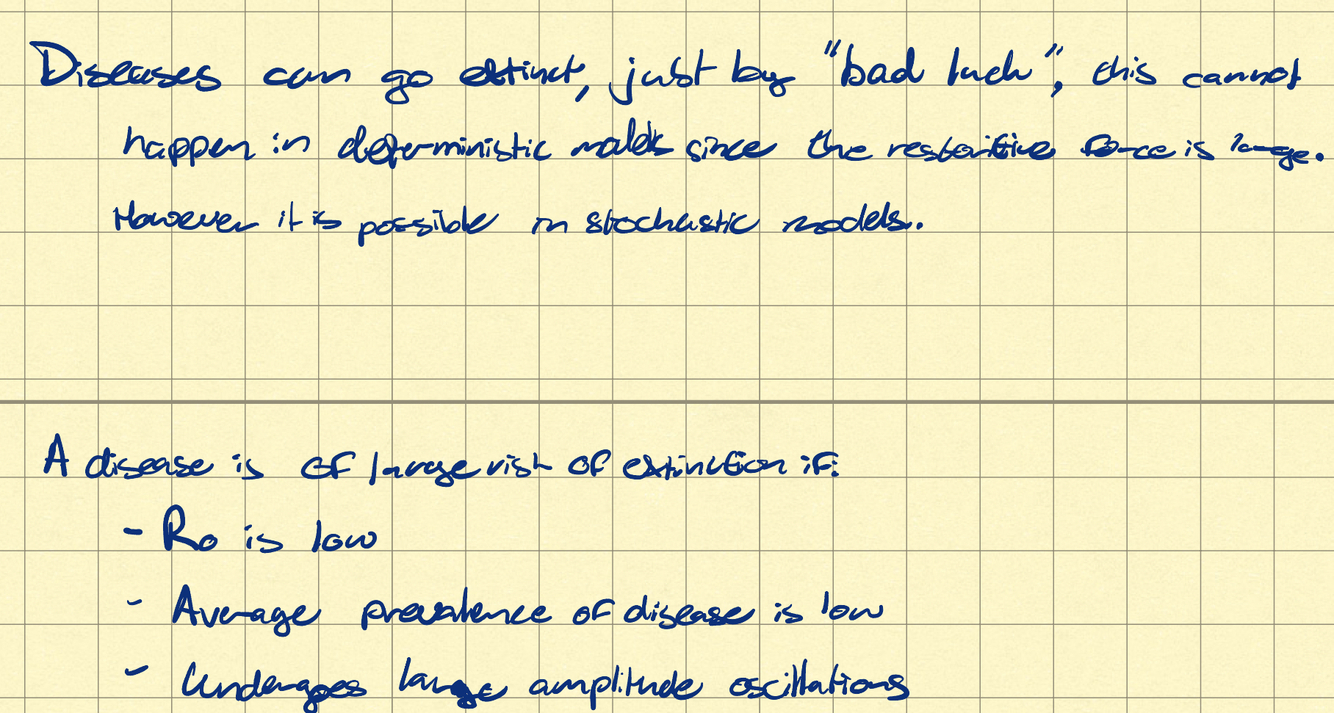 Diseases can go extinct, just by "bad luck", this cannot
happen in deterministic models since the restoritive force is large.
However it is possible in stochastic models.
A disease is of large risk of extinction if:
- R0 is low
- Average prevalence of disease is low
- Undergoes large amplitude oscillations